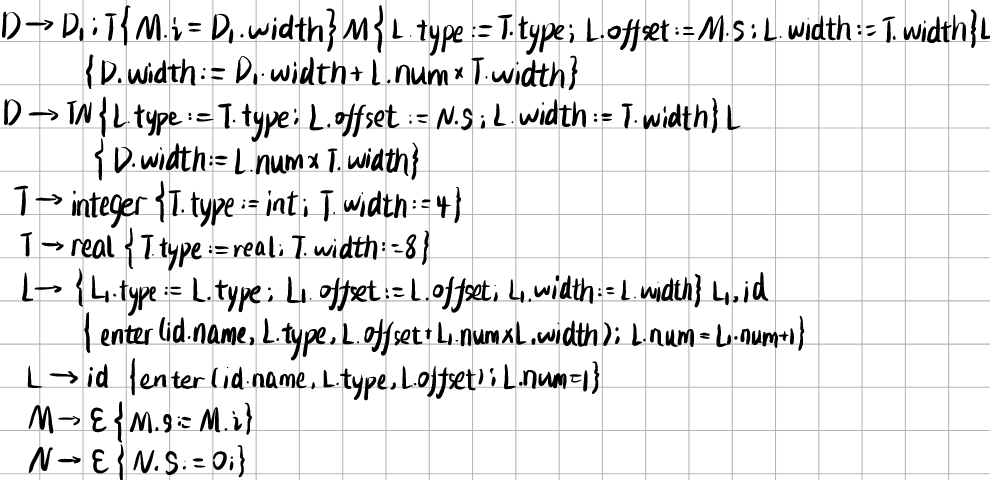 D → D₁ ; T { M.i = D₁.width } M { L.type := T.type; L.offset := M.s ; L.width := T.width } L
{ D.width := D₁.width + L.num × T.width }
D → TN { L.type := T.type; L.offset := N.s ; L.width := T.width } L
{ D.width := L.num × T.width }
T → integer { T.type := int; T.width := 4 }
T → real { T.type := real; T.width := 8 }
L → { L₁.type := L.type; L₁.offset := L.offset, L₁.width := L.width } L₁, id
{ enter (id.name, L.type, L.offset + L₁.num × L.width ); L.num = L₁.num+1 }
L → id { enter (id.name, L.type, L.offset); L.num=1 }
M → ε { M.s := M.i }
N → ε { N.s := 0; }